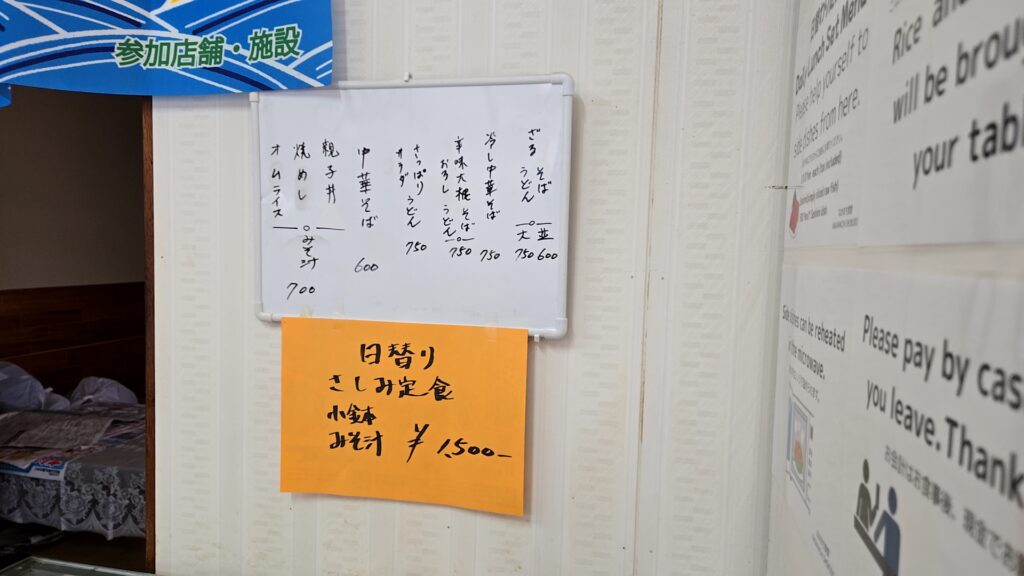 参加店舗・施設
ざる そば うどん 並 600 大 750
冷し中華そば 750
辛味大根 おろし そば うどん 750
さっぱり サラダ うどん 750
中華そば 600
親子丼
焼めし
オムライス
みそ汁 700
日替り
さしみ定食
小鉢
みそ汁 ¥1,500-
Daily Lunch Set Menu
Please help yourself to
side dishes from here.
Rice and
will be brou
your tab
Side dishes can be reheated
in the microwave.
Please pay by cas
you leave. Thank
お会計はお食事後、現金でお